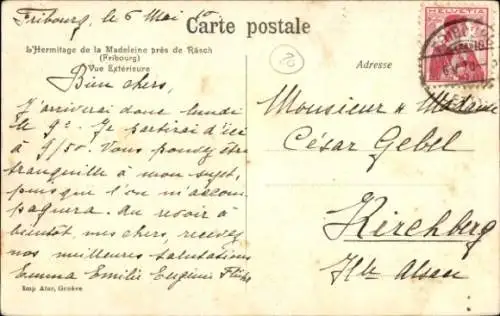 Fribourg, le 6 Mai 10
Carte postale
L'Hermitage de la Madeleine près de Räsch
(Fribourg)
Vue Extérieure
Bien chers,
J'arriverai donc lundi
le 9e. Je partirai d'ici
à 9/50. Vous pouvez être
tranquille à mon sujet,
puisque l'on m'accom-
pagnera. Au revoir à
bientôt, mes chers, recevez
nos meilleures salutations
Emma Emilie Eugénie
Imp Atar, Genève
Adresse
HELVETIA
Monsieur & Madame
César Gebel
Kirchberg
Hte Alsace